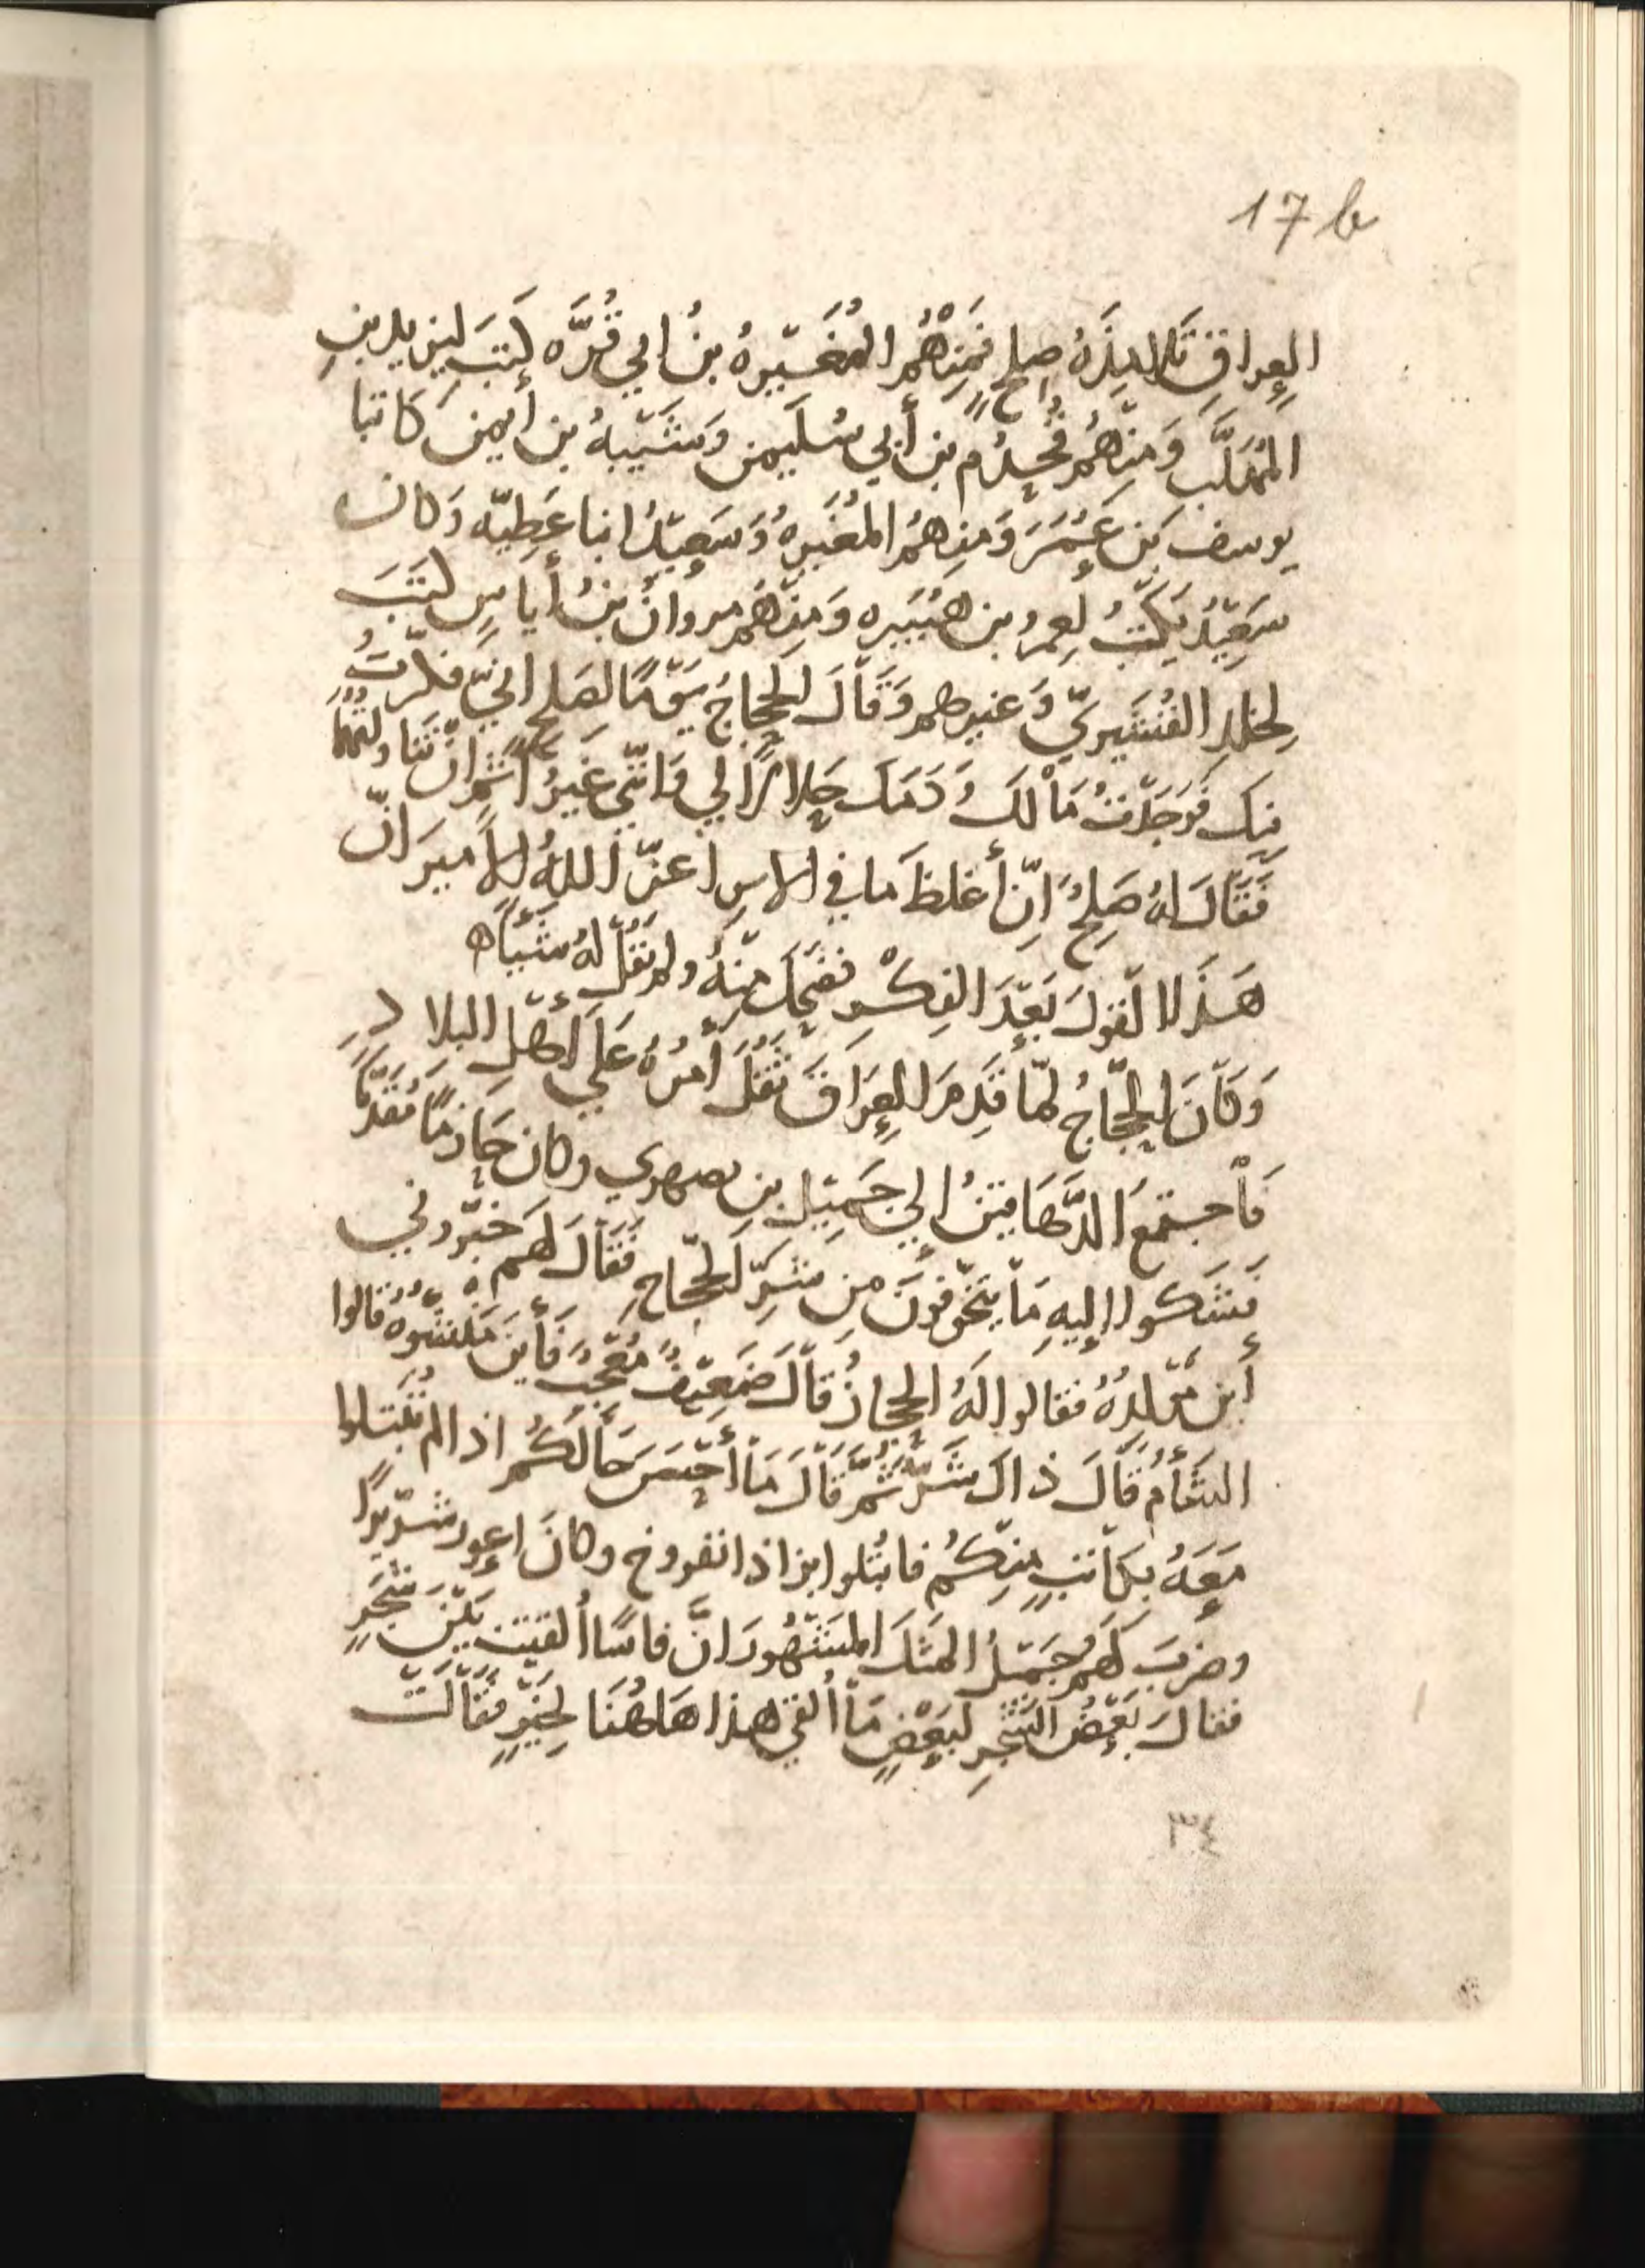 17 b
العِراقِ تَلامِذَهُ صلحٍ فَمِنْهُمُ المُغَيّرهُ بنُ ابي قُرَّه كَتَبَ ليزيد بنِ
المُهَلَّب وَمِنْهُم قُحذُم بن أبي سُلَيمن وَشَيّبهُ بن أيمن كَاتبا
يوسف بن عُمَرَ وَمنهُمُ المُغَيره وَسَعِيدُ ابنا عَطِيّه وَكان
سَعِيّدُ يَكتُبُ لِعمر بن هُبَيَره وَمِنّهُم مروانُ بنُ أياسٍ كتَبَ
لِخلد القُشَيريّ وَغيرهم وَقَاْلَ الحجاجُ يَوّمًا لصَلحٍ انيّ فكّرتُ
فِيك فَوَجَدّتُ مَاْلَكَ وَدَمَك حَلالاً لي وَانّني غَيرُ أَثمٍ انّ تَنَاولتُهُمَا
فَقَالَ لهُ صَلِحُ انّ أغلظَ ما في الامرِ اعزّ اللهُ الأميرَ انّ
هَذَا القولَ بَعّدَ الفِكْرِ فضَحِكَ مِنّهُ ولم يَقُلّ لهُ شَيّأً ه
وَكَاْنَ الحجّاجُ لمّا قَدِمَ العِرَاقَ ثَقُلَ أمرُهُ عَلَي أهّلِ البلادِ
فَاْجتمَعَ الدَّهَاقينُ إلي جَمِيّل بن بصبهري وكان حَازمًا مُقَدّمًا
فَشَكَوا إليهِ مَاْ يَتَخّوَفونَ مِن شرِّ الحجّاجِ فَقَاْلَ لهَم خَبّروني
أينَ مَوّلِدُهُ فقالوا لَهُ الحِجازُ قاْلَ ضَعيّفُ مُعّجَبُ فَأينَ مَنّشَوُهُ قالوا
الشَأّمُ قَاْلَ ذاك شَرٌّ ثُمَّ قَاْلَ مَاْ أحّسَنَ حَالَكُم اذا لم تُبّتلوا
مَعَهُ بكاَتبٍ مِنّكُم فابتُلوا بزاذانفروخ وكانَ اعور شرّيرًا
وضَربَ لَهُم جَمّيلُ المثلَ المَشّهُورَ انَّ فاسًا أُلقيّت بَيّنَ شَجَرٍ
فقالَ بَعّضُ الشجرِ لبَعضٍ مَاْ أُلقيَ هذا هَاهُنَا لِخَيّرٍ فقَاْلَتّ
٣٤